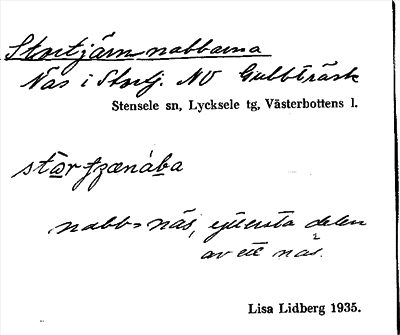 Stortjärnnabbarna
Näs i Stortj. NV Gubbträsk
Stensele sn, Lycksele tg, Västerbottens l.
nabb = näs, yttersta delen
av ett näs.
Lisa Lidberg 1935.